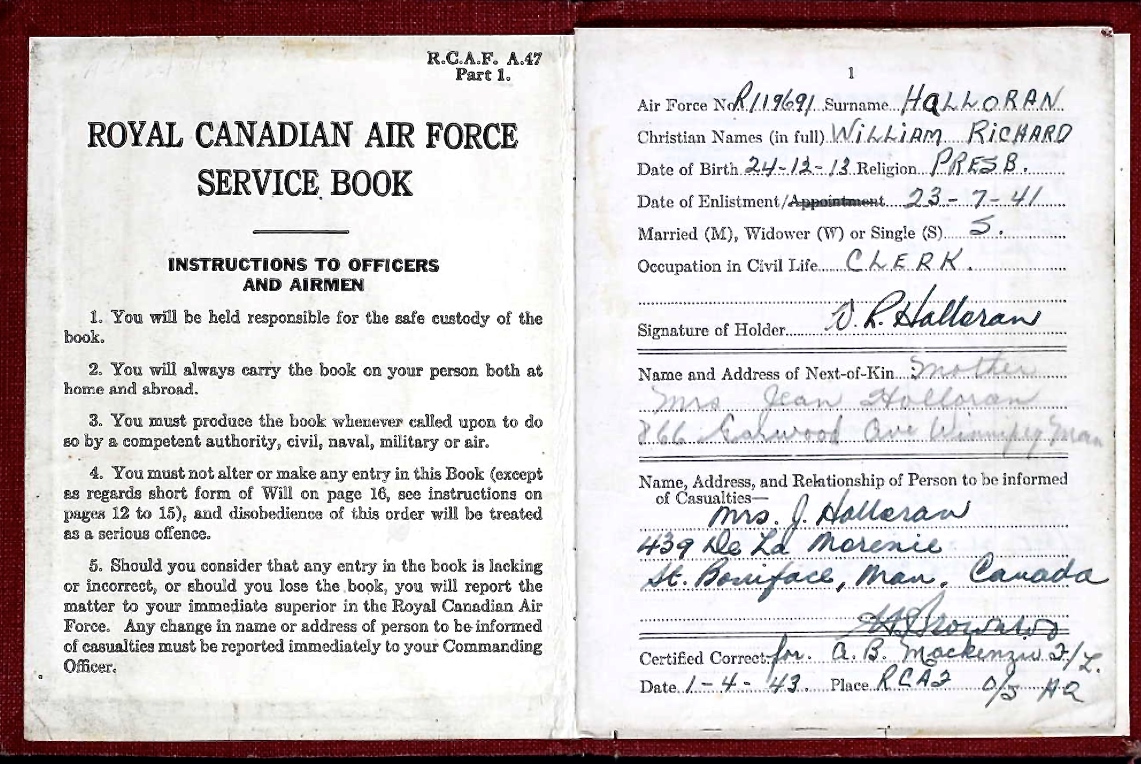 R.C.A.F. A.47
Part 1.
ROYAL CANADIAN AIR FORCE
SERVICE BOOK
INSTRUCTIONS TO OFFICERS
AND AIRMEN
1. You will be held responsible for the safe custody of the
book.
2. You will always carry the book on your person both at
home and abroad.
3. You must produce the book whenever called upon to do
so by a competent authority, civil, naval, military or air.
4. You must not alter or make any entry in this Book (except
as regards short form of Will on page 16, see instructions on
pages 12 to 15), and disobedience of this order will be treated
as a serious offence.
5. Should you consider that any entry in the book is lacking
or incorrect, or should you lose the book, you will report the
matter to your immediate superior in the Royal Canadian Air
Force. Any change in name or address of person to be informed
of casualties must be reported immediately to your Commanding
Officer.
1
Air Force No. R119691 Surname HALLORAN
Christian Names (in full) WILLIAM RICHARD
Date of Birth 24-12-13 Religion PRESB.
Date of Enlistment/Appointment 23-7-41
Married (M), Widower (W) or Single (S) S.
Occupation in Civil Life CLERK.
Signature of Holder W. R. Halloran
Name and Address of Next-of-Kin Mother
Mrs Jean Halloran
866 Garwood Ave Winnipeg Man
Name, Address, and Relationship of Person to be informed
of Casualties—
Mrs. J. Halloran
439 De La Morenie
St. Boniface, Man. Canada
Certified Correct for A. B. Mackenzie F/L.
Date 1-4-43. Place RCAF O/S HQ